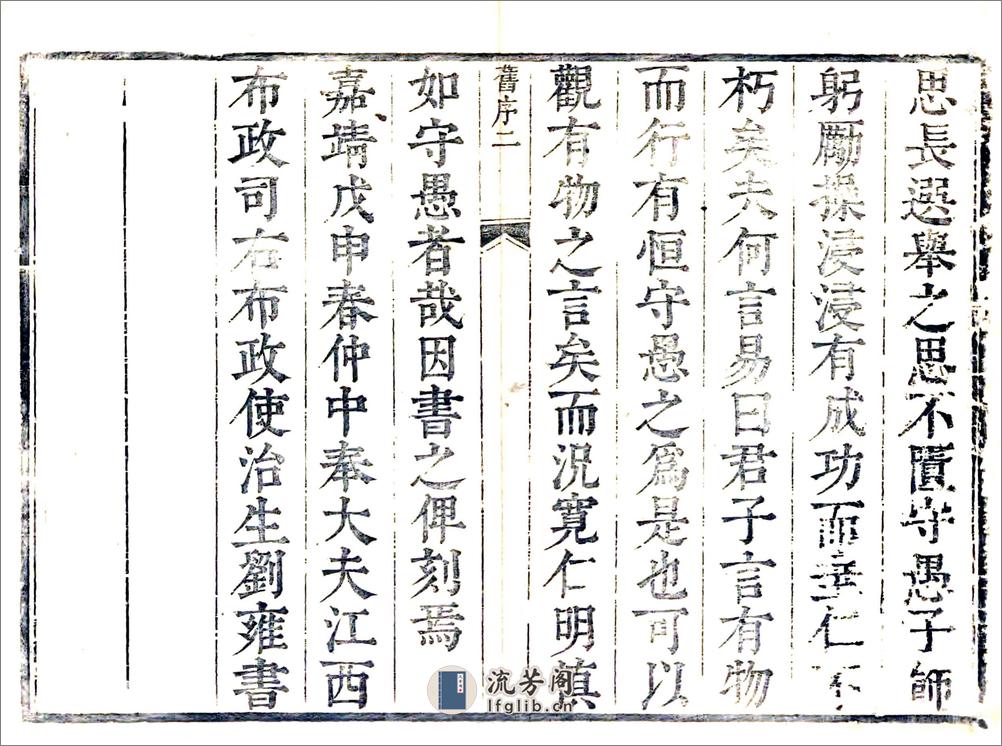 思長選舉之思不隤守愚子師
躬勵操浸浸有成功而仁不
朽矣夫何言易曰君子言有物
而行有恒守愚之爲是也可以
觀有物之言矣而況寬仁明慎
舊序二
如守愚者哉因書之俾刻焉
嘉靖戊申春仲中奉大夫江西
布政司右布政使治生劉雍書
流芳阁
lfglib.cn